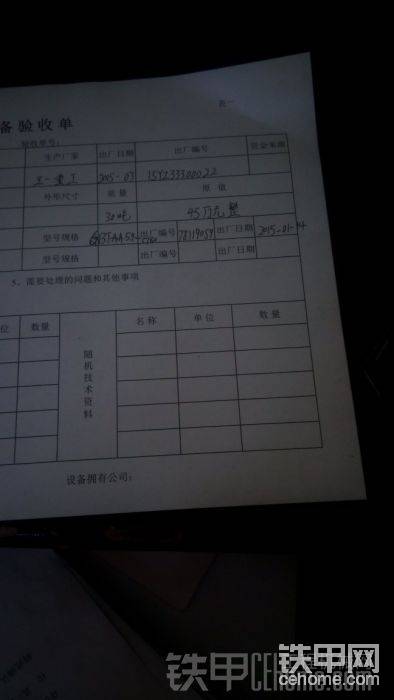 表一
备验收单
验收单号:
生产厂家 出厂日期 出厂编号 资金来源
三一重工 2015-03
外形尺寸 重量 原值
30吨 95万元整
型号规格 出厂编号 78119059 出厂日期 2015-01-14
型号规格 出厂编号 出厂日期
5、需要处理的问题和其他事项
位 数量 随机技术资料 名称 单位 数量
设备拥有公司:
铁甲CEHOME.COM
铁甲网
cehome.com